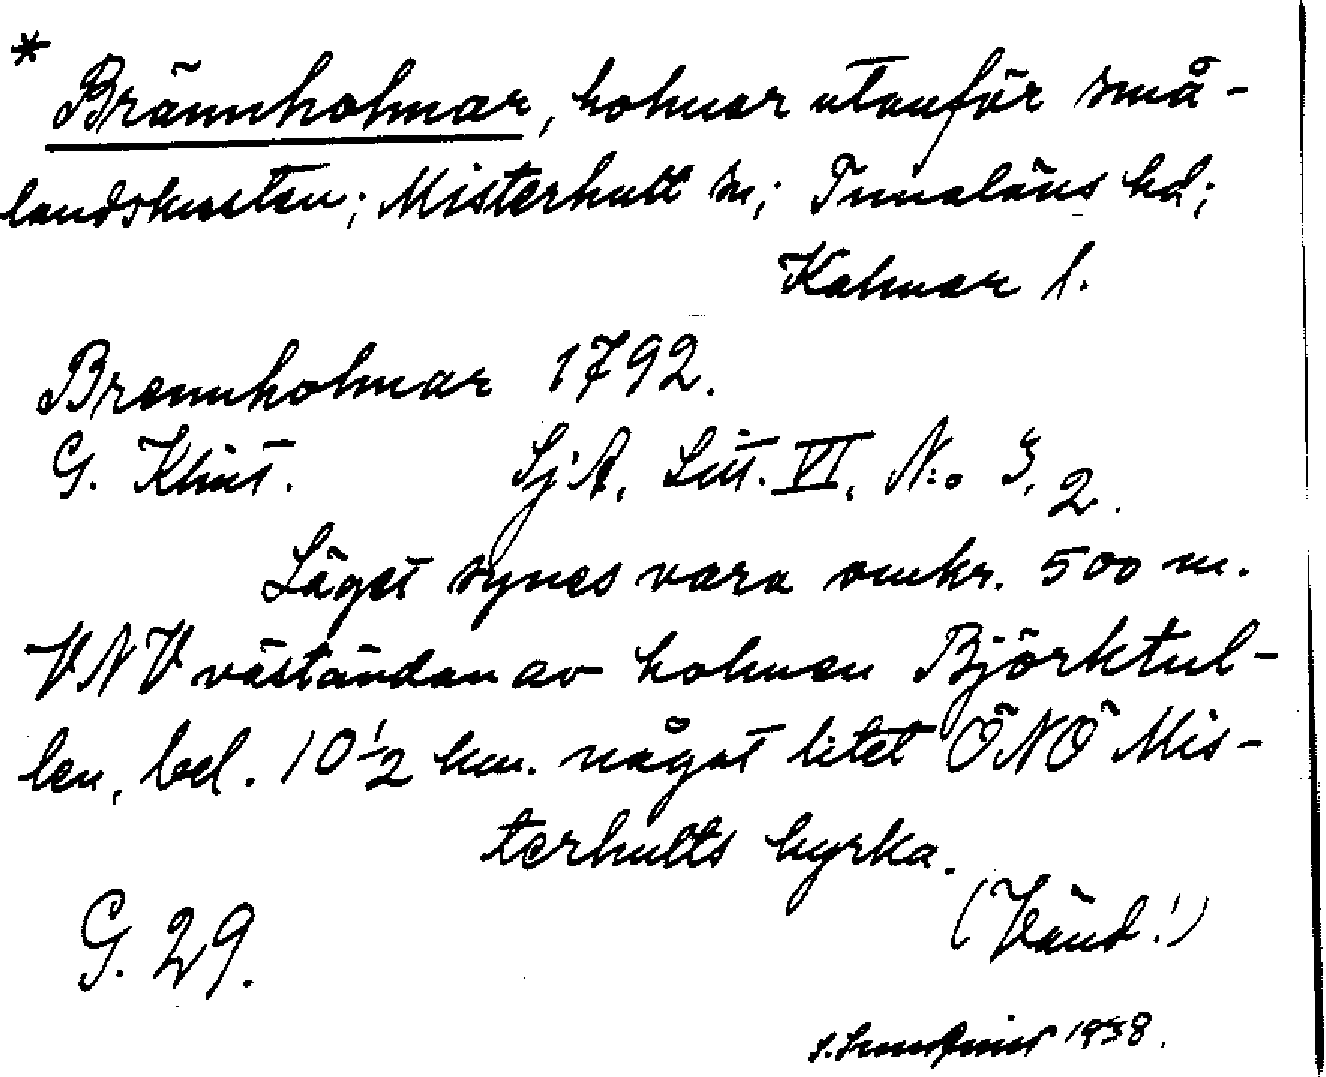 * Brännholmar, holmar utanför små-
landskusten; Misterhult sn; Tunaläns hd;
Kalmar l.
Brennholmar 1792.
G. Klint. Sj:A. Litt. VI. N:o 3, 2.
Läget synes vara omkr. 500 m.
VNV väständan av holmen Björktul-
len, bel. 10 1/2 km. något litet ÖNÖ Mis-
terhults kyrka.
(Vänd!)
G. 29.
1938.